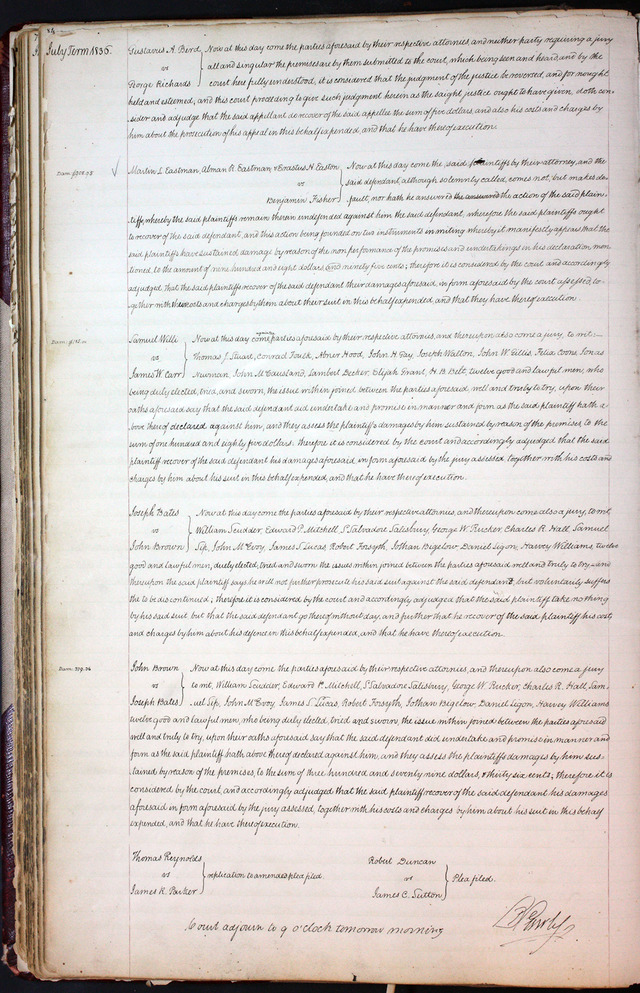 July Term 1836.
Gustavus A. Berd Now at this day come the parties aforesaid by their respective attornies, and neither party requiring a jury
vs all and singular the premises are by them submitted to the court, which being seen and heard, and by the
George Richards court here fully understood, it is considered that the judgment of the justice be reversed, and for nought
held and esteemed, and this court proceeding to give such judgment herein as the said justice ought to have given, doth con-
sider and adjudge that the said appellant do recover of the said appellee the sum of five dollars, and also his costs and charges by
him about the prosecution of his appeal in this behalf expended, and that he have thereof execution.
Martin L Eastman, Alman R. Eastman, & Erastus H. Easton Now at this day come the said plaintiffs by their attorney, and the
vs said defendant although solemnly called, comes not, but makes de-
Benjamin Fisher fault, nor hath he answered the action of the said plain-
tiffs, whereby the said plaintiffs remain therein undefended against him the said defendant, wherefore the said plaintiffs ought
to recover of the said defendant, and this action being founded on two instruments in writing whereby it manifestly appears that the
said plaintiffs have sustained damage by reason of the non performance of the promises and undertakings in his declaration men-
tioned, to the amount of nine hundred and eight dollars and ninety five cents; therefore it is considered by the court and accordingly
adjudged, that the said plaintiffs recover of the said defendant their damages aforesaid, in form aforesaid by the court assessed, to-
gether with their costs and charges by them about their suit in this behalf expended, and that they have thereof execution.
Samuel Willi Now at this day come the parties aforesaid by their respective attornies, and thereupon also come a jury, to wit:
vs Thomas J. Stuart, Conrad Fouck, Abner Hood, John H. Gay, Joseph Walton, John W. Ellis, Felix Coons, Jonas
James W. Carr Nunnan, John McCausland, Lambert Decker, Elijah Grant, H. B. Belt, twelve good and lawful men, who
being duly elected, tried, and sworn, the issue within joined between the parties aforesaid, well and truly to try, upon their
oaths aforesaid say that the said defendant did undertake and promise in manner and form as the said plaintiff hath a-
bove thereof declared against him, and they assess the plaintiff's damages by him sustained by reason of the premises, to the
sum of one hundred and eighty five dollars. therefore it is considered by the court and accordingly adjudged that the said
plaintiff recover of the said defendant his damages aforesaid in form aforesaid by the jury assessed, together with his costs and
charges by him about his suit in this behalf expended, and that he have thereof execution.
Joseph Bates Now at this day come the parties aforesaid by their respective attornies, and thereupon come also a jury, to wit,
vs William Scudder, Edward P. Mitchell, S. Salvadore Salisbury, George W. Rucker, Charles R. Hall, Samuel
John Brown Sip, John McEvoy, James S. Lucas, Robert Forsyth, Jothan Bigelow, Daniel Ligon, Harvey Williams, twelve
good and lawful men, duely elected, tried and sworn the issues within joined between the parties aforesaid well and truly to try and
thereupon the said plaintiff says he will not further prosecute his said suit against the said defendant, but voluntarily suffers
the to be discontinued; therefore it is considered by the court and accordingly adjudged that the said plaintiff take nothing
by his said suit but that the said defendant go thereof without day, and further that he recover of the said plaintiff his costs
and charges by him about his defence in this behalf expended, and that he have thereof execution.
John Brown Now at this day come the parties aforesaid by their respective attornies, and thereupon also come a jury
vs to wit, William Scudder, Edward P. Mitchell, S. Salvadore Salisbury, George W. Rucker, Charles R. Hall, Sam-
Joseph Bates uel Sip, John McEvoy, James S. Lucas, Robert Forsyth, Jothan Bigelow, Daniel Ligon, Harvey Williams
twelve good and lawful men, who being duly elected, tried and sworn, the issue within joined between the parties aforesaid
well and truly to try, upon their oaths aforesaid say that the said defendant did undertake and promise in manner and
form as the said plaintiff hath above thereof declared against him, and they assess the plaintiff's damages by him sus-
tained by reason of the premises, to the sum of three hundred and seventy nine dollars, & thirty six cents; therefore it is
considered by the court, and accordingly adjudged that the said plaintiff recover of the said defendant his damages
aforesaid in form aforesaid by the jury assessed, together with his costs and charges by him about his suit in this behalf
expended, and that he have thereof execution.
Thomas Reynolds Robert Duncan
vs replication to amended plea filed. vs Plea filed.
James R. Parker James C. Sutton
Court adjourn to 9 o'clock tomorrow morning